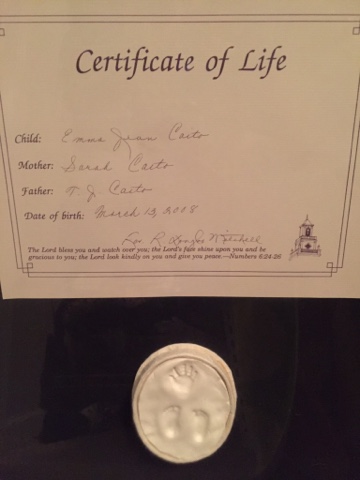 Certificate of Life
Child: Emma Jean Caito
Mother: Sarah Caito
Father: T. J. Caito
Date of birth: March 13, 2008
R. Douglas
The Lord bless you and watch over you; the Lord's face shine upon you and be
gracious to you; the Lord look kindly on you and give you peace.—Numbers 6:24-26